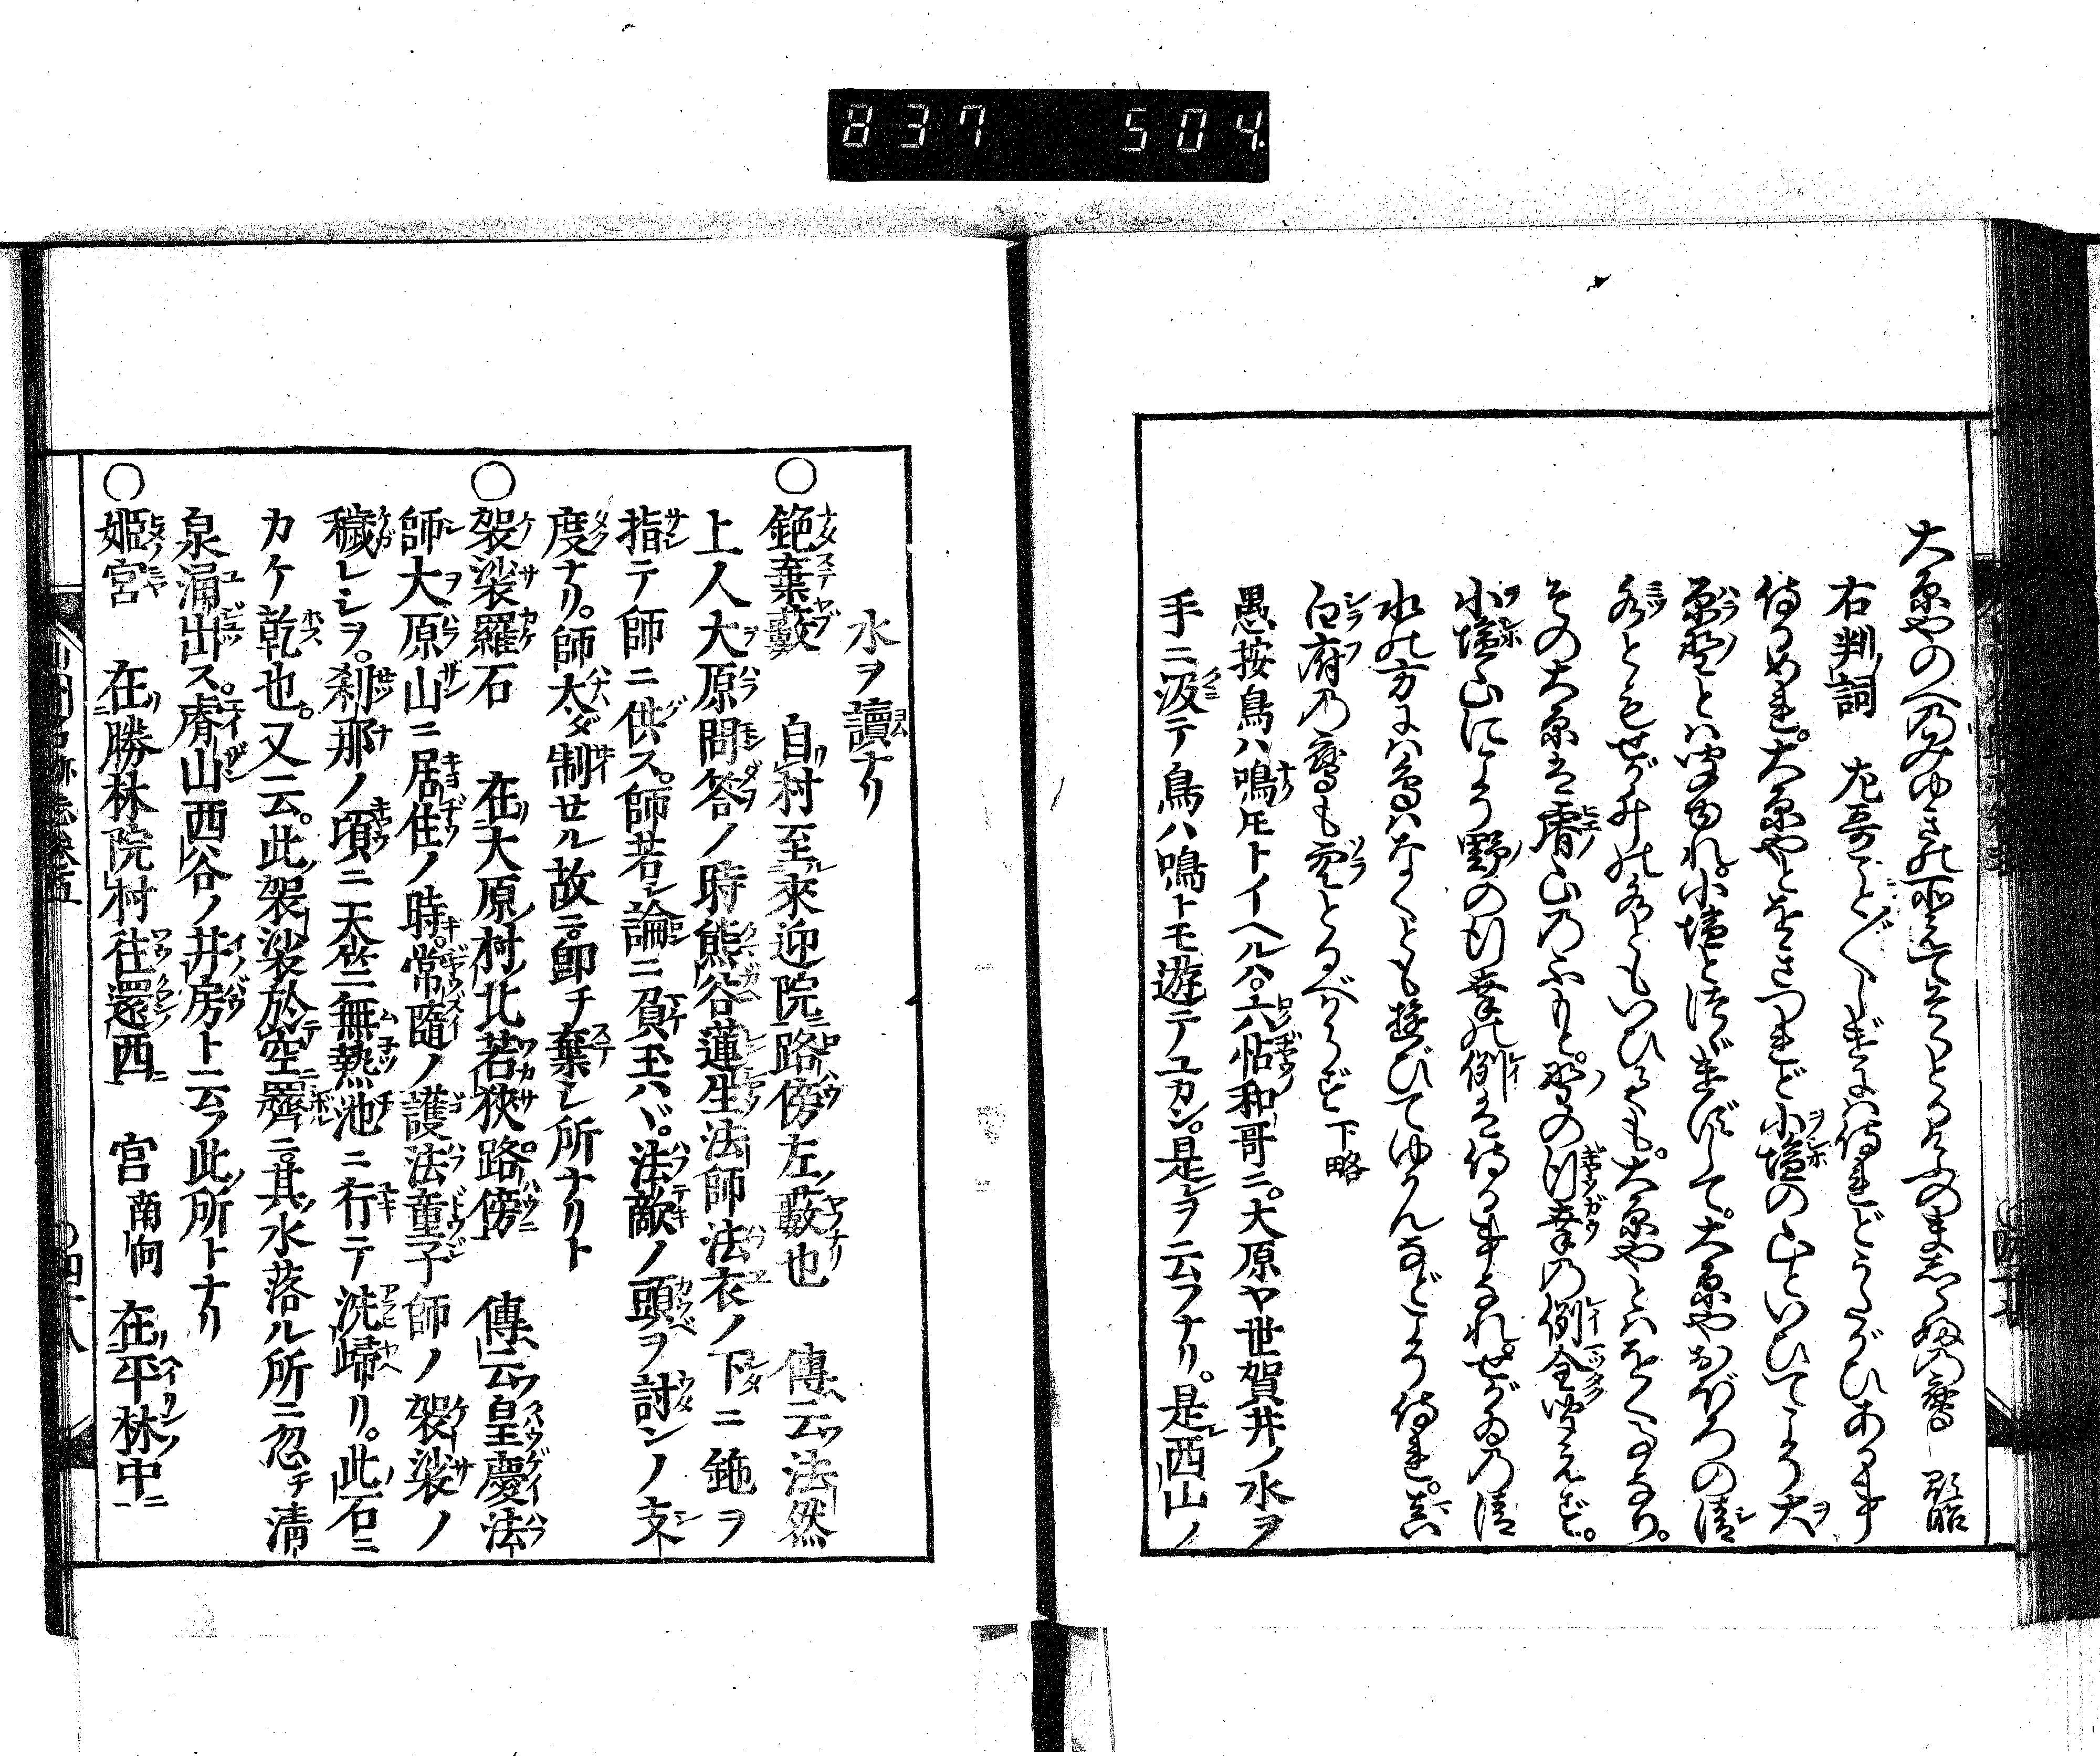 837 504.
大原やのへのみゆきに所えてそらとるけふのましらふの鷹 顕昭
右判詞 左哥ことくしきには侍れどうたがひある事
侍るめれ。大原やとをきつれど小塩の山といひてこそ大
原野とは聞ゆれ。小塩とつゞまずして。大原やおぼろの清
水ともせがゐの水ともいひても。大原やとはをくるなり。
その大原は睿山のふもと。野の行幸の例全聞えず。
小塩山にこそ野の行幸の例は侍る事なれ。せがゐの清
水の方には鳥はなくとも遊びてゆかんなどこそ侍れ。真
白府の鷹も空とるべからず 下略
愚按鳥ハ鳴𪜈トイヘルハ。六帖和哥ニ。大原ヤ世賀井ノ水ヲ
手ニ汲テ鳥ハ鳴トモ遊テユカン。是ヲ云フナリ。是西山ノ
四十七
水ヲ讀ナリ
○鉇棄藪 自村至來迎院路傍左藪也 傳云法然
上人大原問答ノ時熊谷蓮生法師法衣ノ下ニ鉇ヲ
指テ師ニ供ス。師若シ論ニ負玉ハヾ。法敵ノ頭ヲ討ンノ支
度ナリ。師太ダ制セル故ニ。卽チ棄シ所ナリト
○袈裟羅石 在大原村北若狹路傍 傳云皇慶法
師大原山ニ居住ノ時。常隨ノ護法童子師ノ袈裟ノ
穢レシヲ。刹那ノ頃ニ天竺無熱池ニ行テ洗歸リ。此石ニ
カケ乾也。又云。此袈裟於空𩅧ニ。其水落ル所ニ忽チ淸
泉涌出ス。睿山西谷ノ井房ト云フ此所トナリ
○姬宮 在勝林院村往還西 宮南向 在平林中
四十八